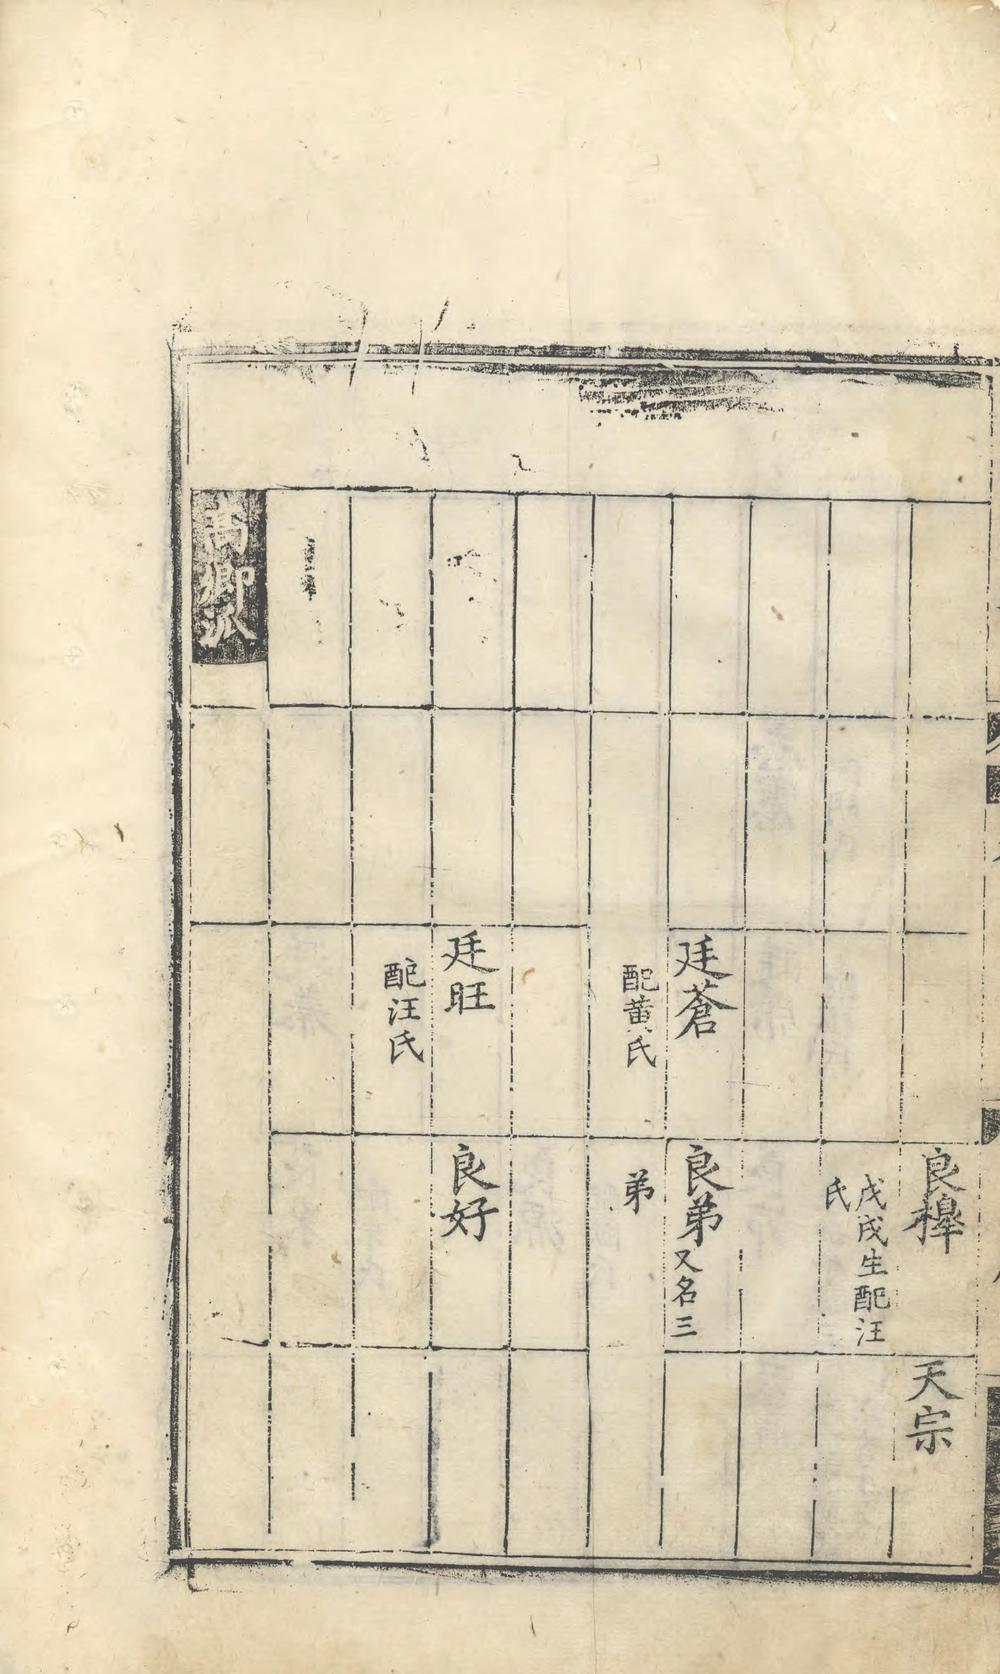 良槔
戊戌生配汪
氏
天宗
廷蒼
配黄氏
良弟又名三
弟
廷旺
配汪氏
良好
卿派